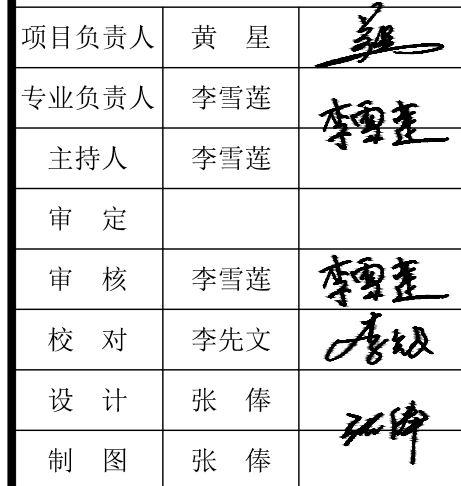 项目负责人 黄 星 黄星
专业负责人 李雪莲 李雪莲
主持人 李雪莲
审 定
审 核 李雪莲 李雪莲
校 对 李先文
设 计 张 俸 张俸
制 图 张 俸